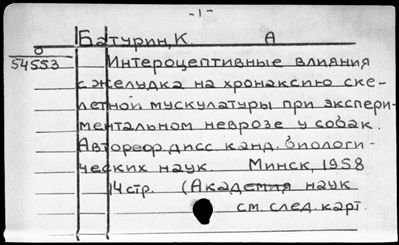 -1-
Батурин, К. А
54553
Интероцептивные влияния
с желудка на хронаксию ске-
летной мускулатуры при экспери-
ментальном неврозе у собак.
Автореф. дисс канд. биологи-
ческих наук. Минск, 1958
14 стр. (Академия наук
см. след. карт.